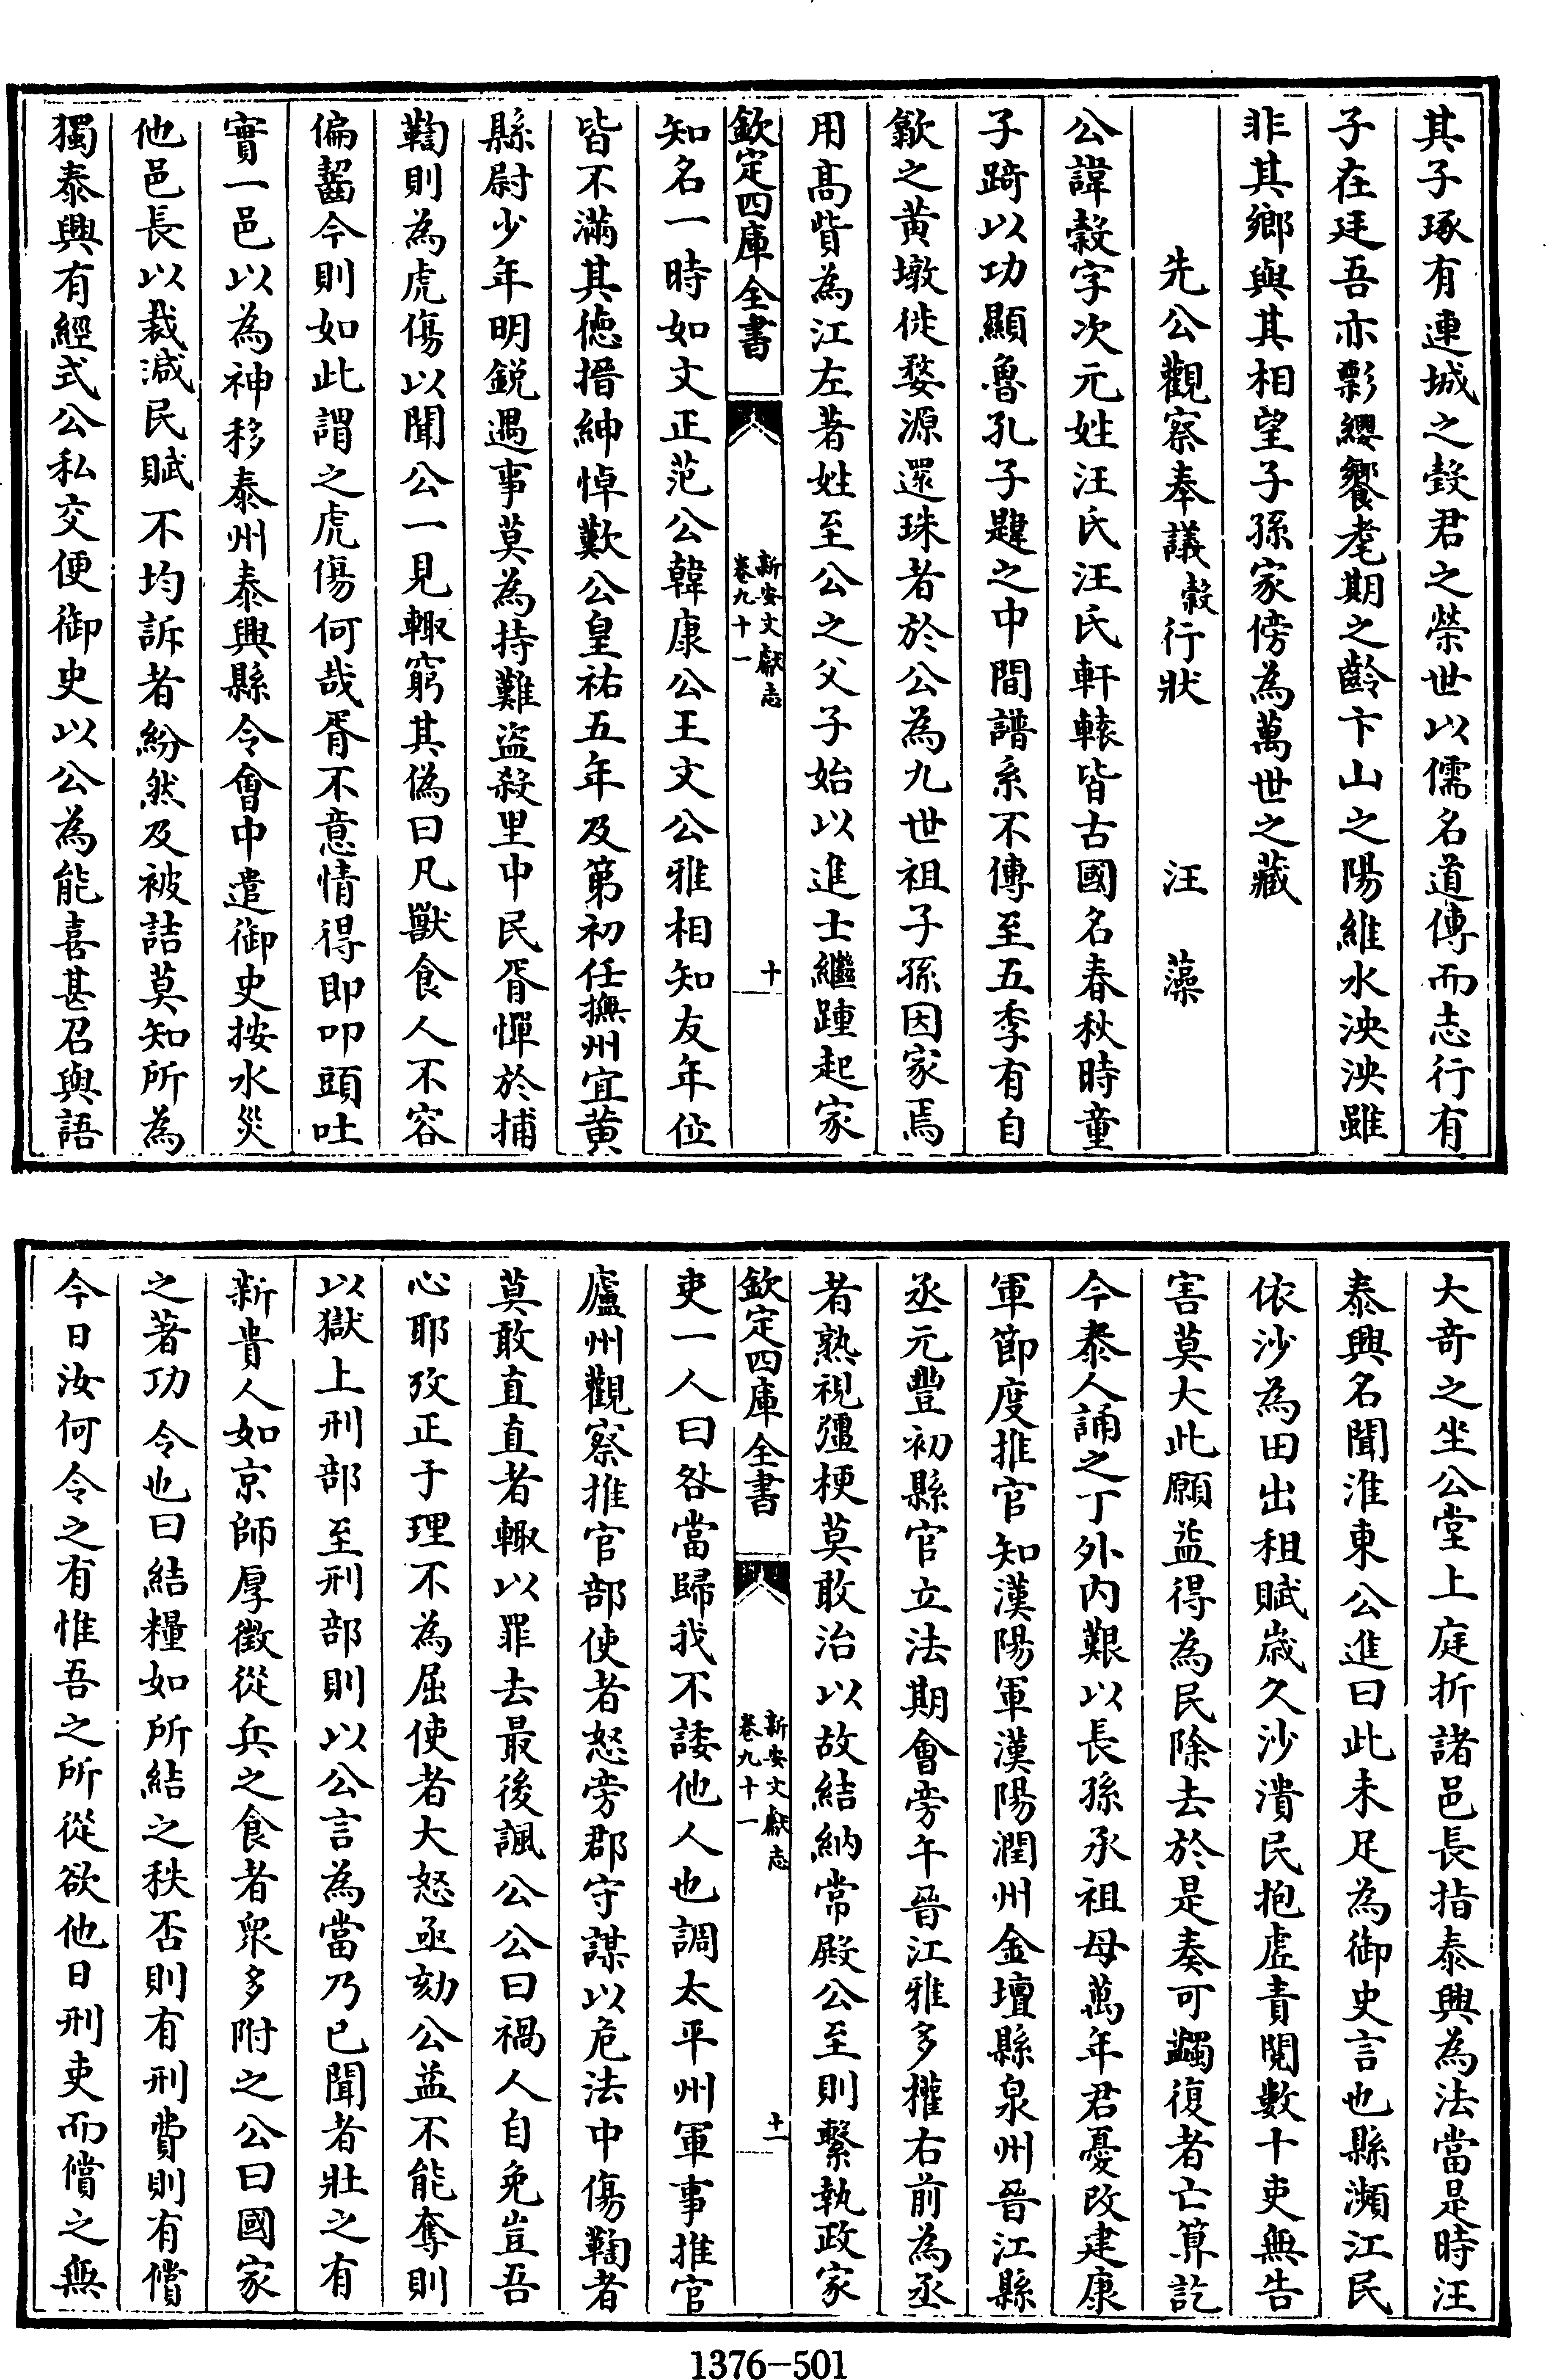 其子琢有連城之瑴君之榮世以儒名道傳而志行有
子在廷吾亦影纓饗耄期之齡卞山之陽維水泱泱雖
非其鄉與其相望子孫家傍為萬世之藏
先公觀察奉議穀行狀　汪藻
公諱穀字次元姓汪氏汪氏軒轅皆古國名春秋時童
子踦以功顯魯孔子韙之中間譜系不傳至五季有自
歙之黄墩徙婺源還珠者於公為九世祖子孫因家焉
用髙貲為江左著姓至公之父子始以進士繼踵起家
欽定四庫全書
新安文獻志
卷九十一
十
知名一時如文正范公韓康公王文公雅相知友年位
皆不滿其徳搢紳悼歎公皇祐五年及第初任撫州宜黄
縣尉少年明鋭遇事莫為持難盜殺里中民胥憚於捕
鞫則為虎傷以聞公一見輙窮其偽曰凡獸食人不容
偏齧今則如此謂之虎傷何哉胥不意情得即叩頭吐
實一邑以為神移泰州泰興縣令會中遣御史按水災
他邑長以裁減民賦不均訴者紛然及被詰莫知所為
獨泰興有經式公私交便御史以公為能喜甚召與語
大竒之坐公堂上庭折諸邑長指泰興為法當是時汪
泰興名聞淮東公進曰此未足為御史言也縣瀕江民
依沙為田出租賦歳久沙潰民抱虛責閱數十吏無告
害莫大此願益得為民除去於是奏可蠲復者亡算訖
今泰人誦之丁外内艱以長孫承祖母萬年君憂改建康
軍節度推官知漢陽軍漢陽潤州金壇縣泉州晉江縣
丞元豐初縣官立法期會旁午晉江雅多權右前為丞
者熟視彊梗莫敢治以故結納常殿公至則繫執政家
欽定四庫全書
新安文獻志
卷九十一
十一
吏一人曰咎當歸我不諉他人也調太平州軍事推官
廬州觀察推官部使者怒旁郡守謀以危法中傷鞫者
莫敢直直者輙以罪去最後諷公公曰禍人自免豈吾
心耶攷正于理不為屈使者大怒亟劾公益不能奪則
以獄上刑部至刑部則以公言為當乃已聞者壯之有
新貴人如京師厚徴從兵之食者衆多附之公曰國家
之著功令也曰結糧如所結之秩否則有刑費則有償
今日汝何令之有惟吾之所從欲他日刑吏而償之無
1376-501